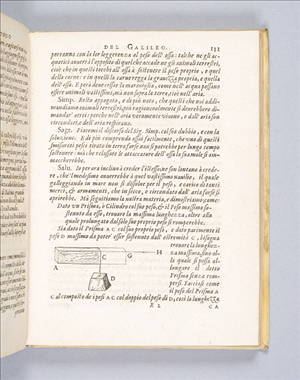 DEL GALILEO. 131
porranno con la lor leggerezza al peso dell' ossa: talche ne gli ac-
quatici auuerrà l'opposito di quel che accade ne gli animali terrestri,
cioè che in questi tocchi all' ossa à sostenere il peso proprio, e quel
della carne: e in quelli la carne regga la grauezza propria, e quella
dell' ossa. E però deue cessar la marauiglia, come nell' acqua possano
essere animali vastissimi, mà non sopra la terra, cioè nell' aria.
Simp. Resto appagato, e di più noto, che questi che noi addi-
mandiamo animali terrestri ragioneuolmente si deurebbero di-
mandar' aerei: perche nell' aria veramente viuono, e dall' aria son
circondati, e dell' aria respirano.
Sagr. Piacemi il discorso del Sig. Simp. col suo dubbio, e con la
soluzione. E di più comprendo assai facilmente, che vno di questi
smisurati pesci tirato in terra forse non si potrebbe per lungo tempo
sostenere: mà che relassate le attaccature dell' ossa la sua mole si am-
maccherebbe.
Salu. Io per ora inclino à creder l'istesso: ne son lontano à crede-
re, che 'l medesimo auuerrebbe à quel vastissimo nauilio, il quale
galleggiando in mare non si dissolue per il peso, e carico di tanti
merci, & armamenti, che in secco, e circondato dall' aria forse si
aprirebbe. Mà seguitiamo la nostra materia, e dimostriamo, come:
Dato vn Prisma, ò Cilindro col suo peso, & il Peso massimo so-
stenuto da esso, trouare la massima lunghezza, oltre alla
quale prolungato dal solo suo proprio peso si romperebbe.
Sia dato il Prisma A C col suo proprio peso, e dato parimente il
peso D massimo da poter' esser sostenuto dall' estremità C, bisogna
trouare la lunghez-
za massima, sino al-
la quale si possa al-
lungare il detto
Prisma senza rom-
persi. Facciasi come
il peso del Prisma A
A C G H
D
C al composto de i pesi A C col doppio del peso di D, così la lunghezza
R 2 C A